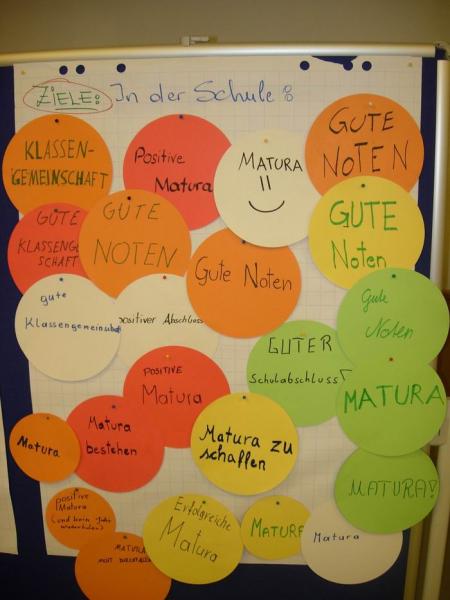 ZIELE: In der Schule:
KLASSEN-
GEMEINSCHAFT
Positive
Matura
MATURA
!!
GUTE
NOTEN
GUTE
KLASSENGE
SCHAFT
GUTE
NOTEN
GUTE
Noten
Gute Noten
gute
Klassengemeinschaft
positiver Abschluss
Gute
Noten
GUTER
Schulabschluss
POSITIVE
Matura
MATURA
Matura
Matura
bestehen
Matura zu
schaffen
MATURA!
positive
Matura
(und kein Jahr
wiederholen)
Erfolgreiche
Matura
MATURA
Matura
MATURA
NICHT DURCHFALLEN